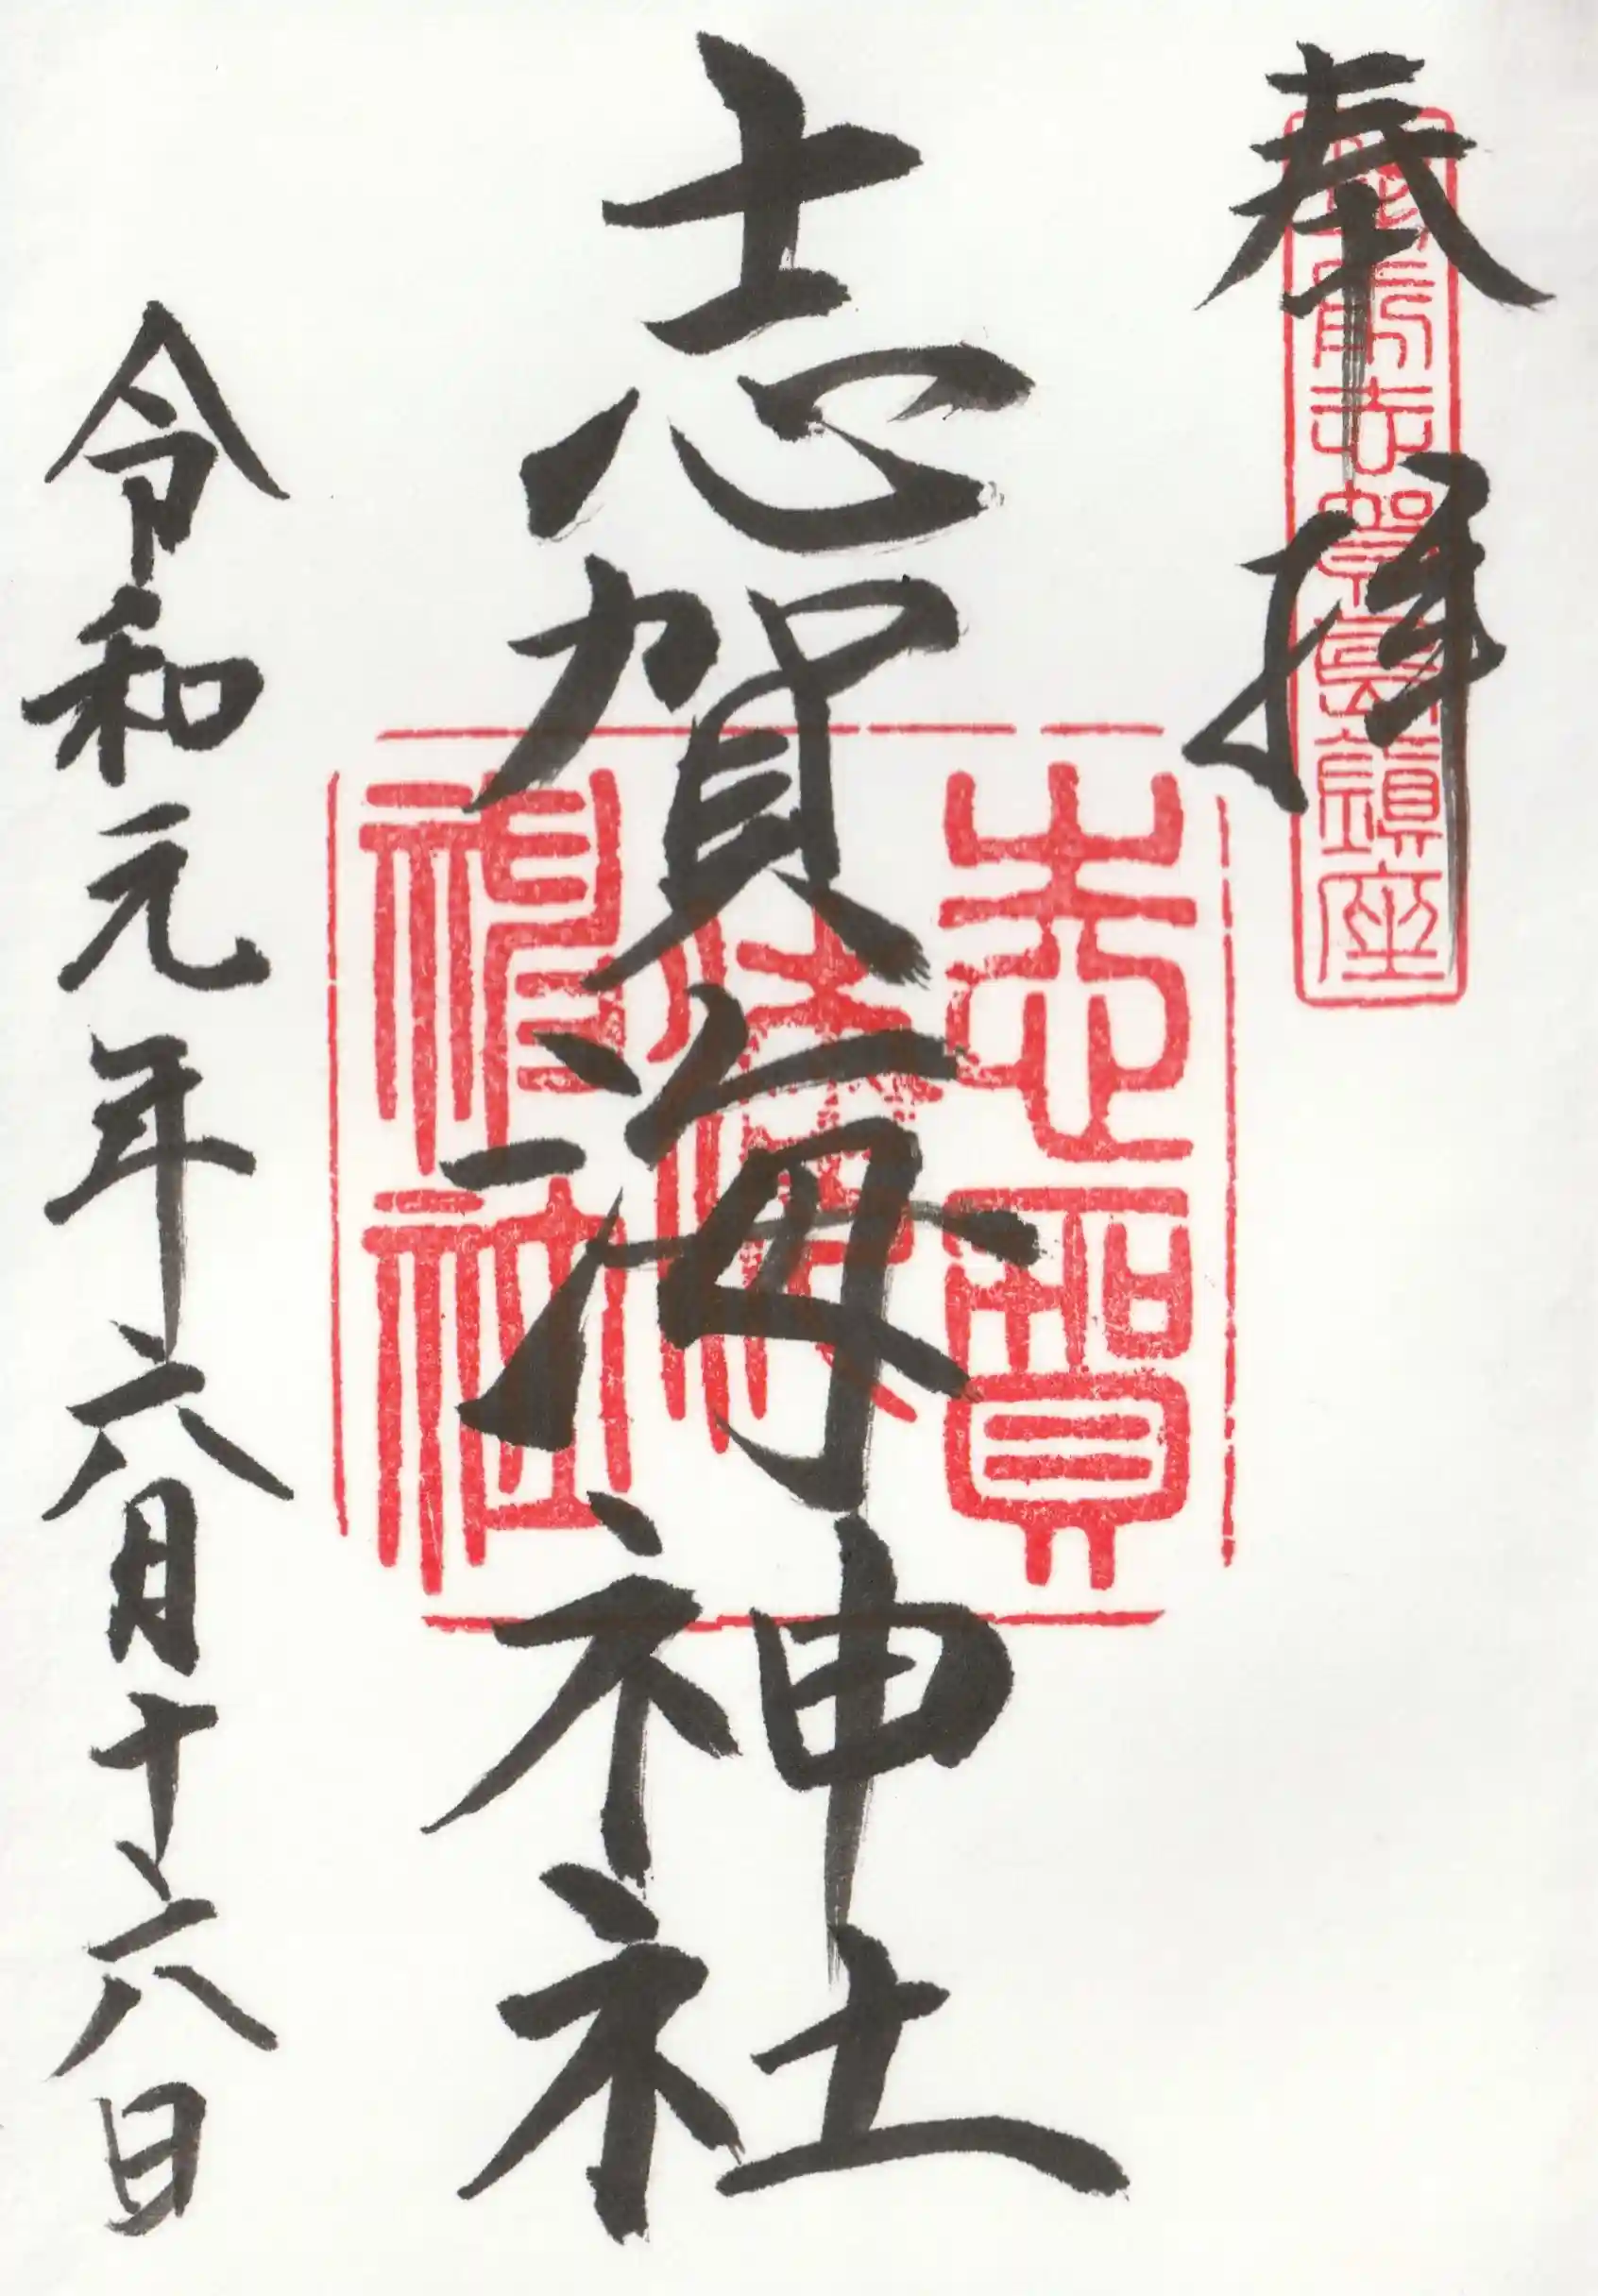 奉拝
筑前志賀島鎮座
志賀海神社
志賀海神社
令和元年六月十六日